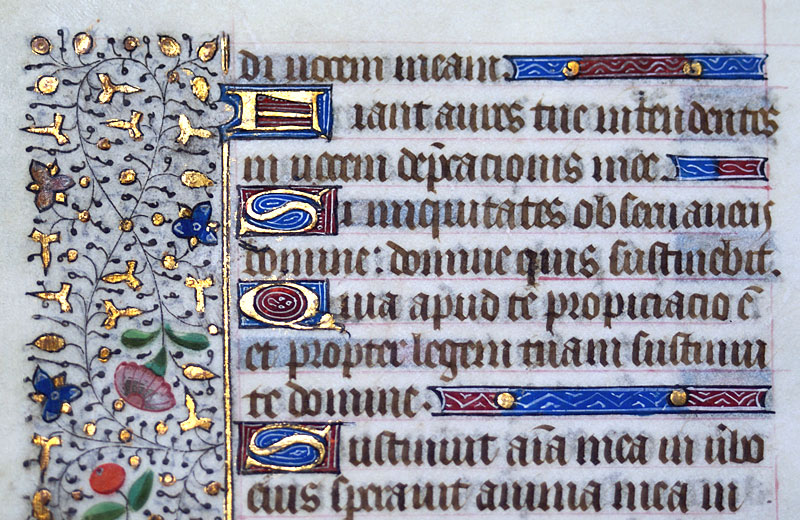 di uocem meam.
Fiant aures tue intendentes
in uocem dep̄cacionis mee.
Si iniquitates obseruaueris
domine: domine quis sustinebit.
Quia apud te propiciacio ē
et propter legem tuam sustinui
te domine.
Sustinuit aīa mea in ūbo
eius sperauit anima mea in